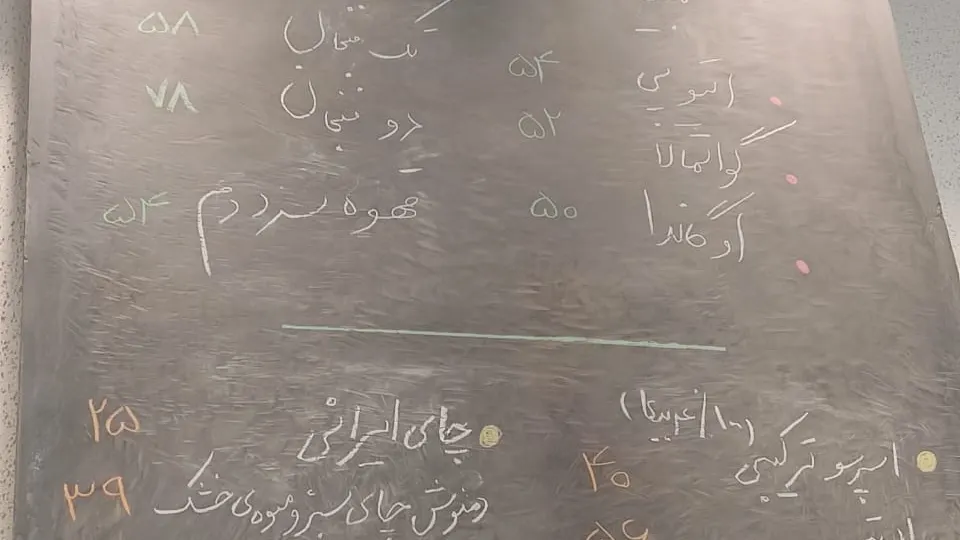 اتیوپی ۵۴
گواتمالا ۵۲
اوگاندا ۵۰
یک فنجان ۵۸
دو فنجان ۷۸
قهوه سرد دم ۵۴
اسپرسو ترکیبی
۴۰
چای ایرانی ۲۵
دمنوش چای سبز و میوه‌ی خشک ۳۹